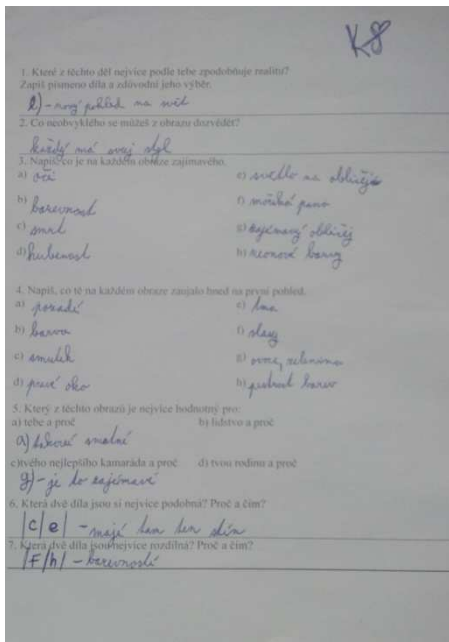 K8
1. Které z těchto děl nejvíce podle tebe zpodobňuje realitu?
Zapiš písmeno díla a zdůvodni jeho výběr.
- nový pohled na svět
2. Co neobvyklého se můžeš z obrazu dozvědět?
každý má svoj styl
3. Napiš, co je na každém obraze zajímavého.
a) oči e) světlo na obličeji
b) barevnost f) mořská
c) smrt g) obličej
d) hubenost h) neonové barvy
4. Napiš, co tě na každém obraze zaujalo hned na první pohled.
a) pozadí e) tma
b) barva f)
c) smutek g) ovoce, zelenina
d) pravé oko h) pestrost barev
5. Který z těchto obrazů je nejvíce hodnotný pro:
a) tebe a proč b) lidstvo a proč
a)
c) tvého nejlepšího kamaráda a proč d) tvou rodinu a proč
g) - je to zajímavé
6. Která dvě díla jsou si nejvíce podobná? Proč a čím?
|c|e| - mají tam ten stín
7. Která dvě díla jsou nejvíce rozdílná? Proč a čím?
|F|h| - barevností